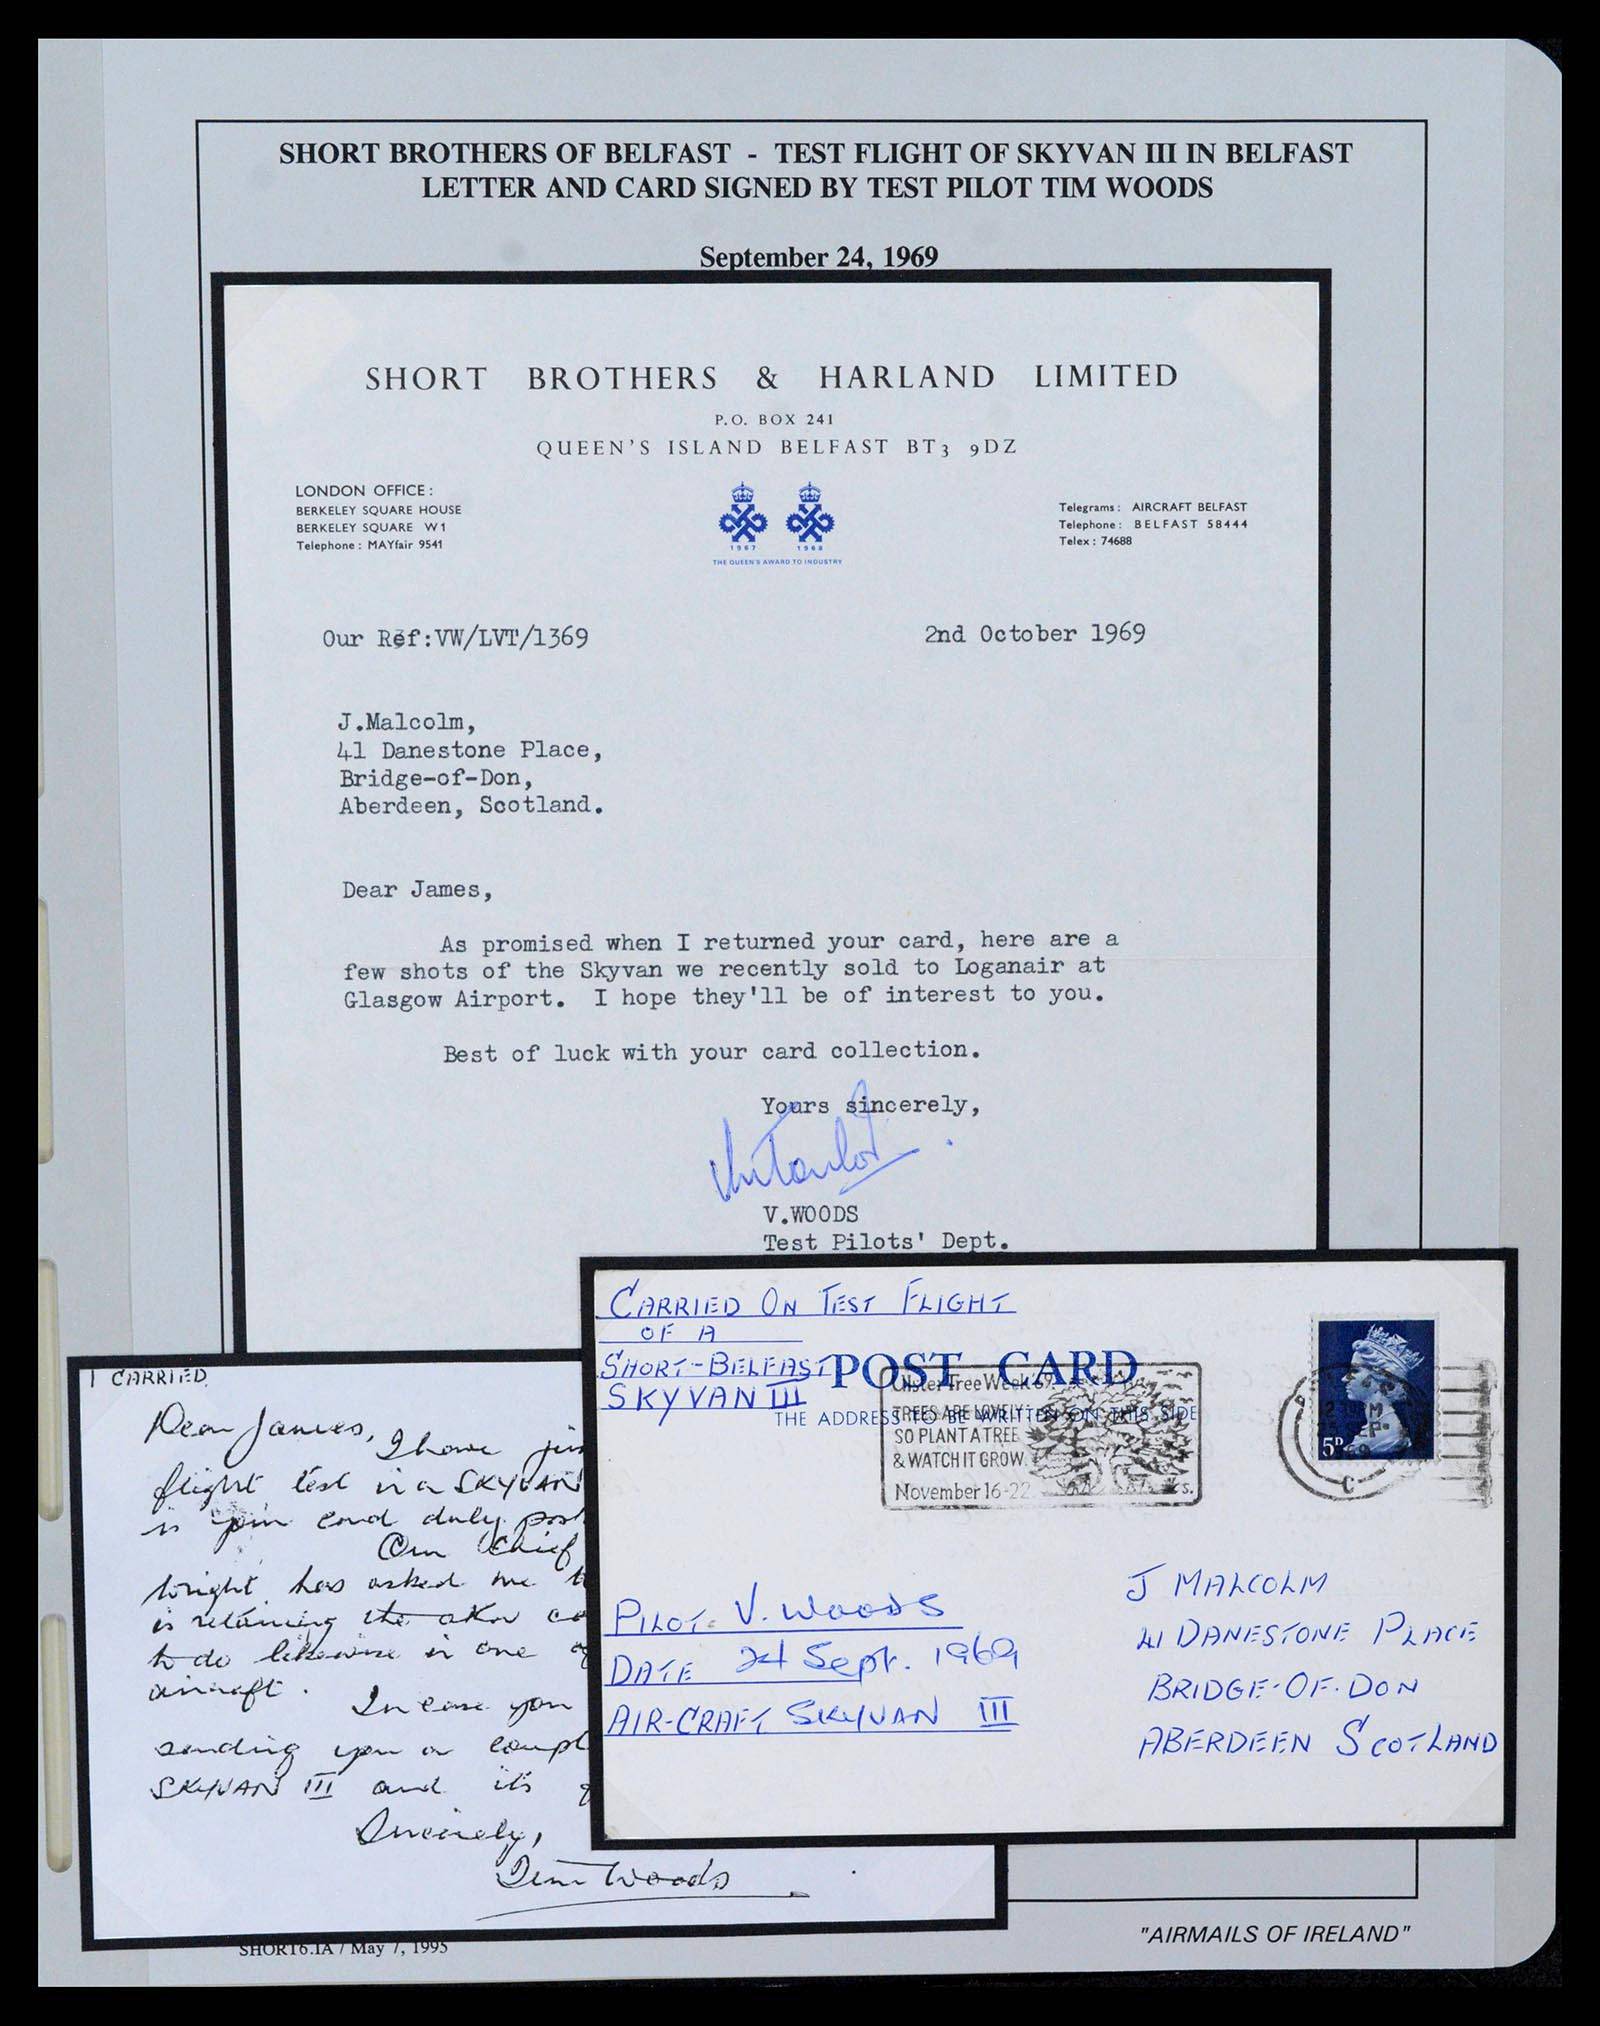 SHORT BROTHERS OF BELFAST - TEST FLIGHT OF SKYVAN III IN BELFAST
LETTER AND CARD SIGNED BY TEST PILOT TIM WOODS
September 24, 1969
SHORT BROTHERS & HARLAND LIMITED
P.O. BOX 241
QUEEN'S ISLAND BELFAST BT3 9DZ
LONDON OFFICE:
BERKELEY SQUARE HOUSE
BERKELEY SQUARE W1
Telephone: MAYfair 9541
1967 1968
THE QUEEN'S AWARD TO INDUSTRY
Telegrams: AIRCRAFT BELFAST
Telephone: BELFAST 58444
Telex: 74688
Our Ref:VW/LVT/1369
2nd October 1969
J.Malcolm,
41 Danestone Place,
Bridge-of-Don,
Aberdeen, Scotland.
Dear James,
As promised when I returned your card, here are a
few shots of the Skyvan we recently sold to Loganair at
Glasgow Airport. I hope they'll be of interest to you.
Best of luck with your card collection.
Yours sincerely,
V.WOODS
Test Pilots' Dept.
CARRIED ON TEST FLIGHT
OF A
SHORT-BELFAST
SKYVAN III
POST CARD
THE ADDRESS TO BE WRITTEN ON THIS SIDE
Ulster Tree Week '69
TREES ARE LOVELY
SO PLANT A TREE
& WATCH IT GROW
November 16-22
5D
PILOT. V. Woods
DATE 24 Sept. 1969
AIR-CRAFT SKYVAN III
J MALCOLM
41 DANESTONE PLACE
BRIDGE-OF-DON
ABERDEEN SCOTLAND
CARRIED
Dear James,
I have
flight test in a SKYVAN
is your card duly
Our Chief
tonight has asked me
is retaining the other
to do likewise in one
aircraft.
In case you
sending you a
SKYVAN III and its
Sincerely,
Tim Woods
SHORT6.1A / May 7, 1995
"AIRMAILS OF IRELAND"